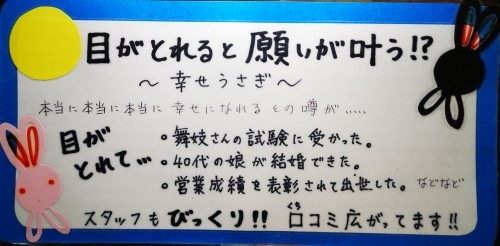 目がとれると願いが叶う!?
～幸せうさぎ～
本当に本当に本当に幸せになれるその噂が.....
目が
とれて…
・舞妓さんの試験に受かった。
・40代の娘が結婚できた。
・営業成績を表彰されて出世した。などなど
スタッフもびっくり!! 口コミ広がってます!!
くち